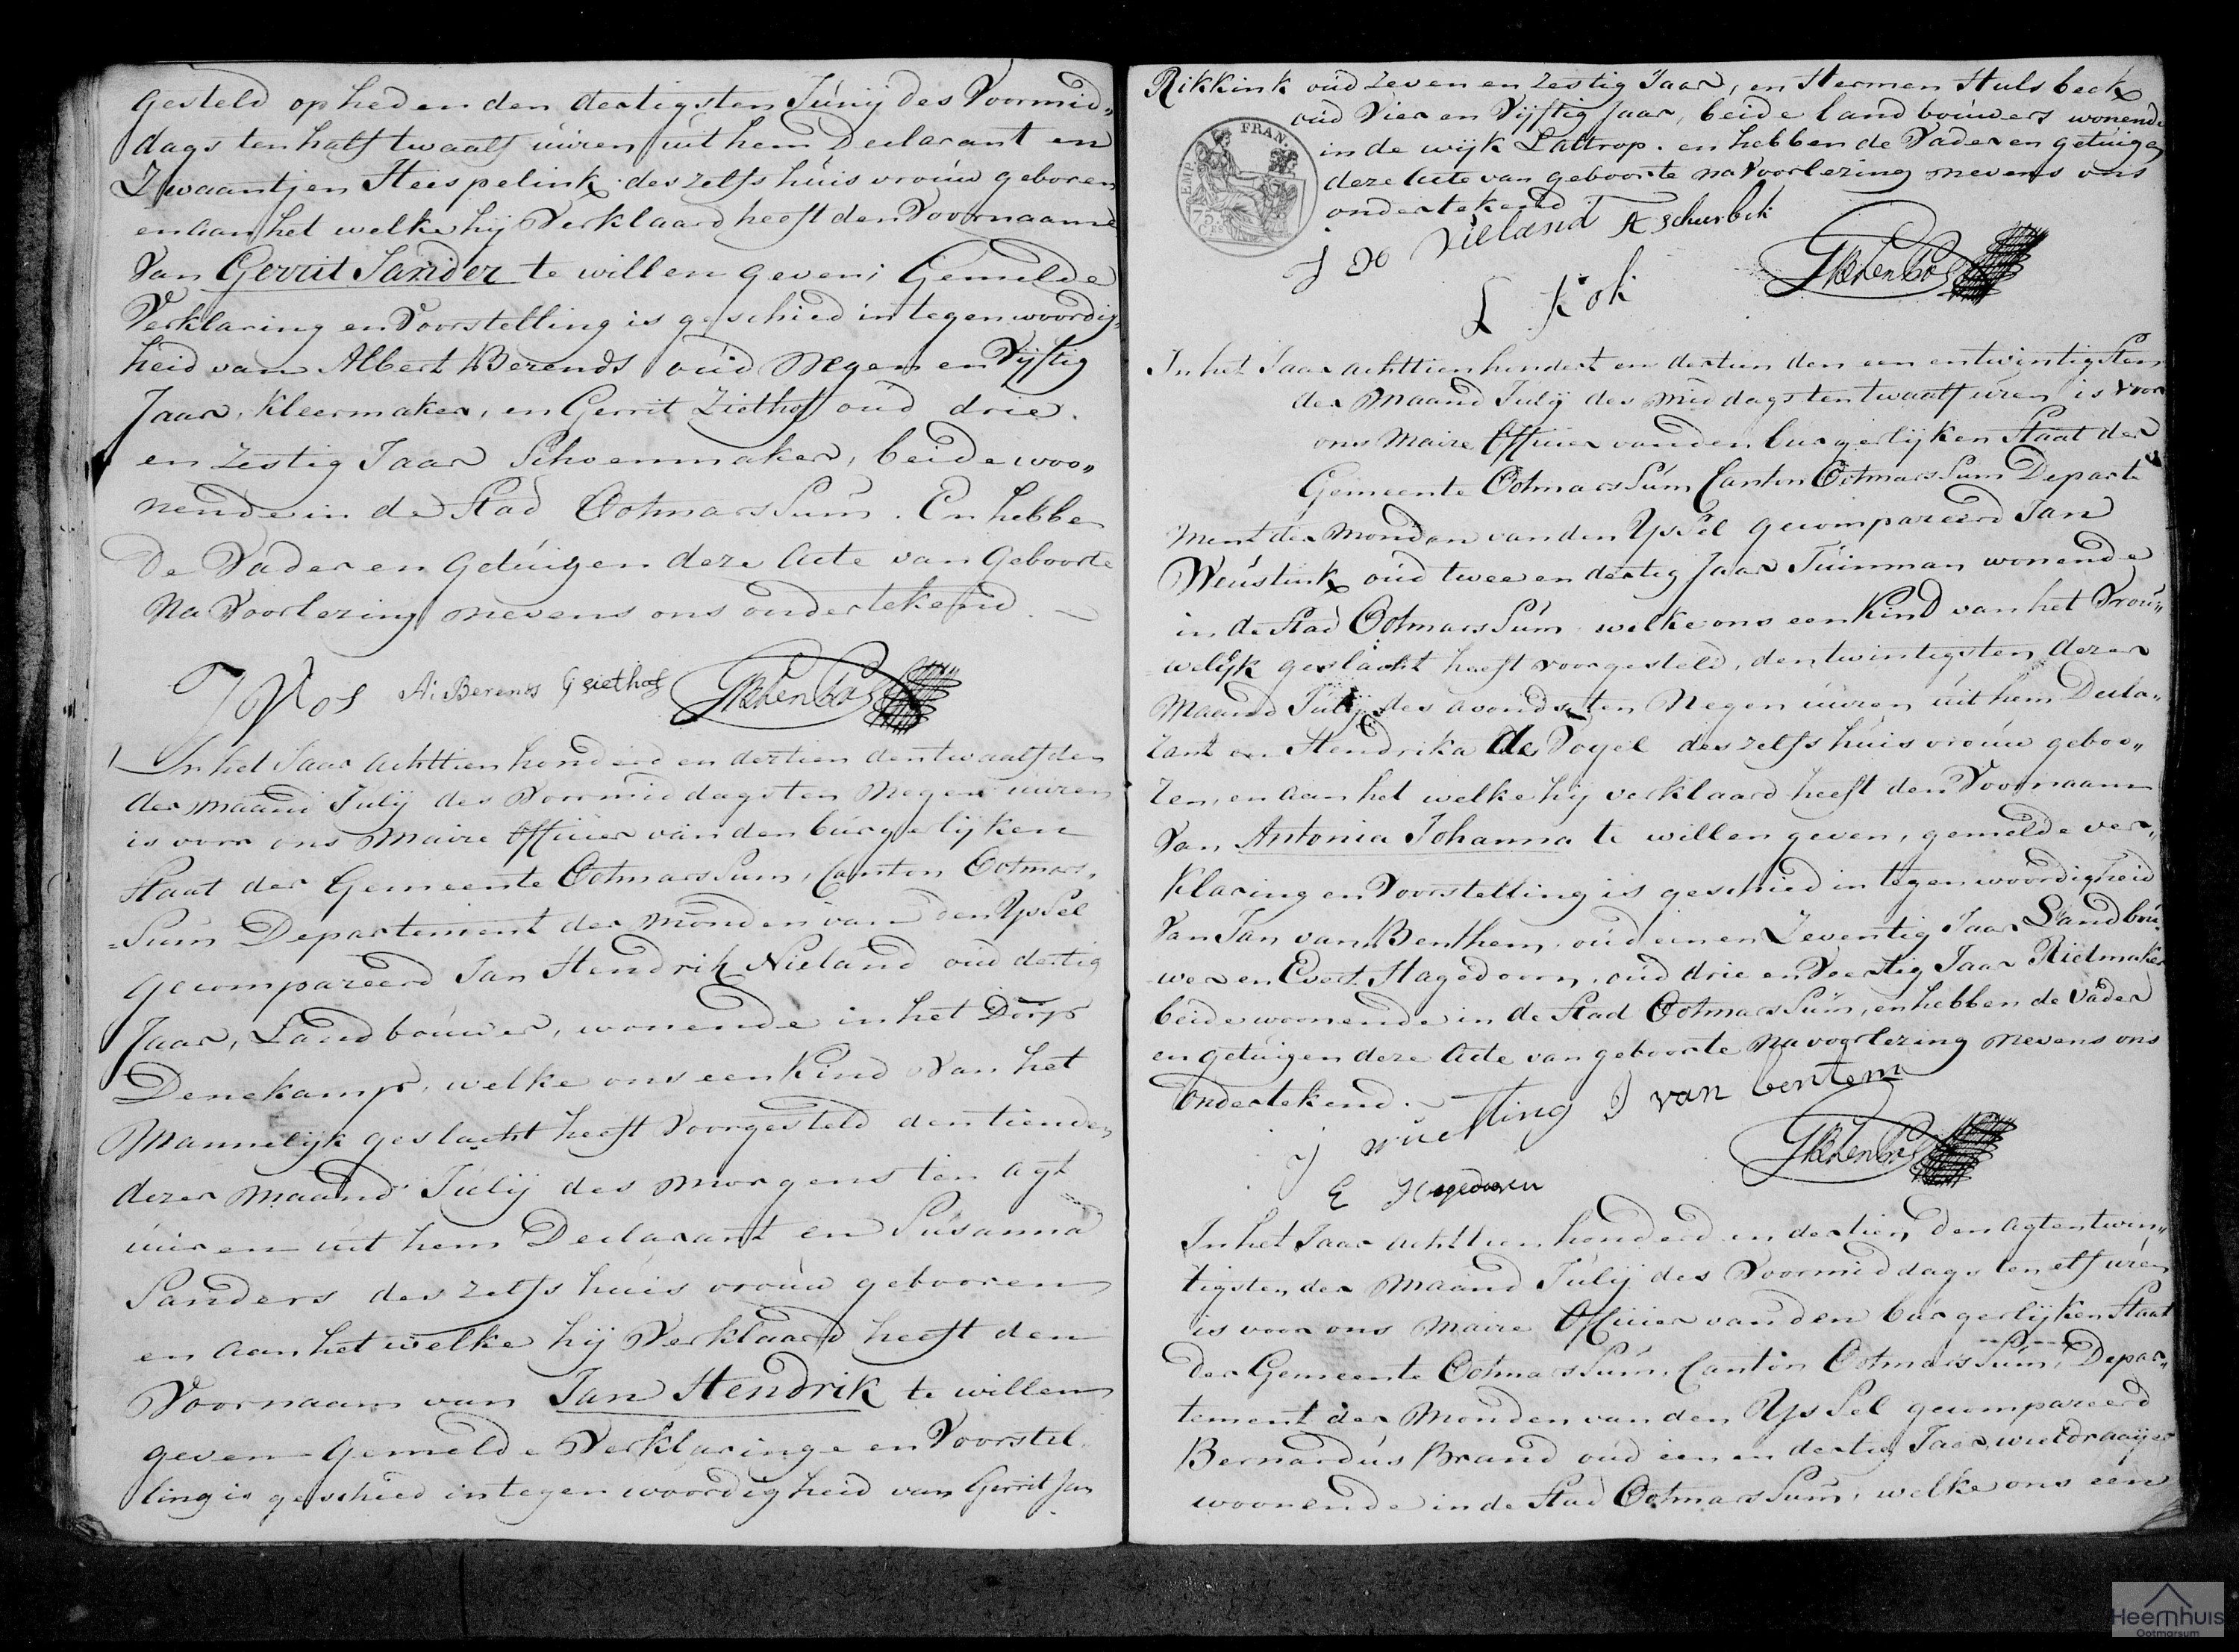 Gesteld op heden den dertigsten Junij des Voormid„
dags ten half twaalf uuren uit hem Declarant en
Zwaantjen Heespelink deszelfs huisvrouw geboren
en aan het welke hij Verklaard heeft den Voornaame
Van Gerrit Sander te willen geven; Gemelde
Verklaring en Voorstelling is geschied in tegenwoordig„
heid van Albert Berends oud Negen en Vijftig
Jaar, Kleermaker, en Gerrit Ziethof oud drie
en Zestig Jaar Schoenmaker, beide woo„
nende in de Stad Ootmarssum. En hebben
De Vader en Getuigen deze Acte van Geboorte
Na Voorlezing nevens ons ondertekend.
J Vos A: Berents G Ziethof
In het Jaar achttien honderd en dertien den twaalfden
der maand Julij des Voormiddags ten Negen uuren
is voor ons Maire Officier van den burgerlijken
Staat der Gemeente Ootmarssum, Canton Ootmars,
=Sum Departement der Monden van den Yssel
gecompareerd Jan Hendrik Nieland oud dertig
Jaar, Landbouwer, wonende in het Dorp
Denekamp, welke ons een Kind Van het
Mannelijk geslacht heeft Voorgesteld den tienden
dezer maand Julij des morgens ten agt
uuren uit hem Declarant en Susanna
Sanders deszelfs huisvrouw gebooren
en aan het welke hij Verklaard heeft den
Voornaam van Jan Hendrik te willen
geven Gemelde Verklaringe en Voorstel
ling is geschied in tegenwoordigheid van Gerrit Jan
Rikkink oud Zeven en Zestig Jaar, en Hermen Hulsbeek
oud Vier en Vijftig Jaar, beide landbouwers wonende
in de wijk Lattrop. en hebben de Vader en getuigen
deze Acte van geboorte na Voorlezing nevens ons
ondertekend
EMP. FRAN.
75
Ces
J H Nieland
L Kok
In het Jaar achttien hondert en dertien den een en twintigsten
der Maand Julij des middags ten twaalf uren is voor
ons Maire Officier van den burgerlijken Staat der
Gemeente Ootmarssum Canton Ootmarssum Departe
ment der Monden van den Yssel gecompareerd Jan
Weustink oud twee en dertig Jaar Tuinman wonende
in de Stad Ootmarssum welke ons een Kind van het Vrou„
welijk geslacht heeft voorgesteld, den twintigsten dezer
Maand Julij des avonds ten Negen uuren uit hem Decla„
rant en Hendrika de Vogel deszelfs huisvrouw geboo„
ren, en aan het welke hij verklaard heeft den Voornaam
Van Antonia Johanna te willen geven, gemelde ver„
Klaring en Voorstelling is geschied in tegenwoordigheid
Van Jan van Benthem oud een en Zeventig Jaar Landbou„
wer en Evert Hagedoorn, oud drie en Veertig Jaar Rietmaker
beide woonende in de Stad Ootmarssum, en hebben de Vader
en getuigen deze Acte van geboorte na voorlezing nevens ons
Ondertekend.
J van bentem
E Hagedoren
In het Jaar achttien honderd en dertien, den agtentwin„
tigsten der Maand Julij des Voormiddags ten elf uren
is voor ons Maire Officier van den burgerlijken Staat
der Gemeente Ootmarssum, Canton Ootmarssum, Depar„
tement der Monden van den Yssel gecompareerd
Bernardus Brand oud een en dertig Jaar wieldraaijer
woonende in de Stad Ootmarssum, welke ons een
Heemhuis
Ootmarsum